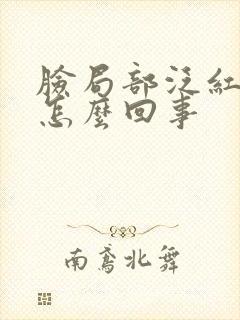 臉局部泛紅
怎麼回事
南鳶北舞